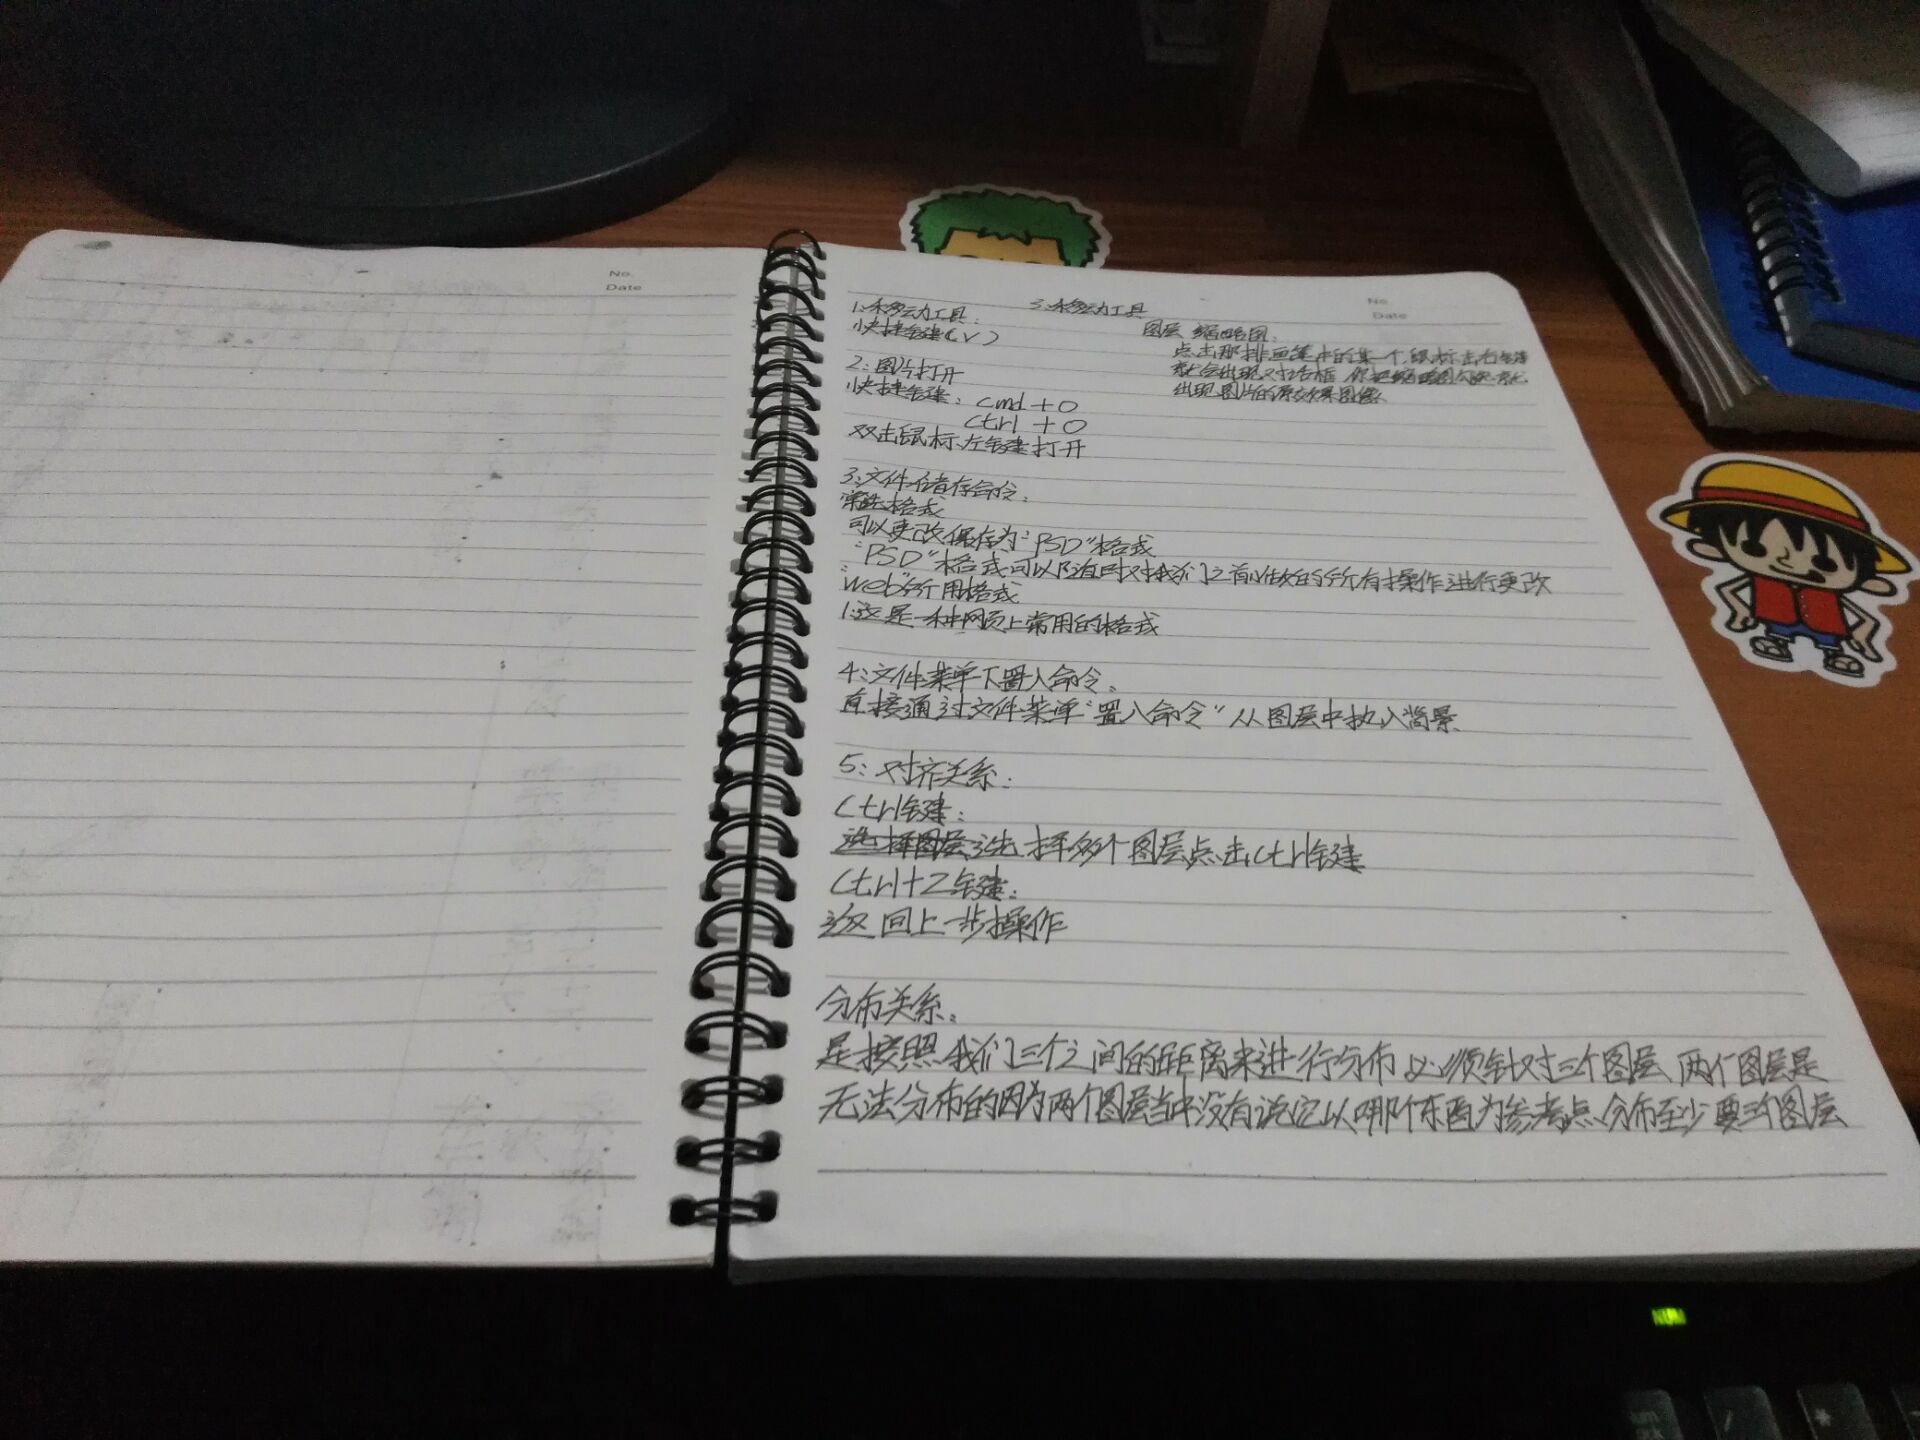 No.
Date
3.移动工具
No.
Date
1.移动工具:
快捷键(V)
图层缩略图:
点击那排画笔中的某一个,鼠标击右键
就会出现对话框
出现图片的源效果图像.
2:图片打开
快捷键: cmd+O
ctrl +O
双击鼠标左键打开
3:文件储存命令:
常选格式
可以更改保存为"PSD"格式
"PSD"格式可以随时对我们之前做的所有操作进行更改
web所用格式
1:这是一种网页上常用的格式
4:文件菜单下置入命令.
直接通过文件菜单"置入命令"从图层中执入背景
5:对齐关系:
Ctrl键:
选择多个图层点击Ctrl键
Ctrl+Z键:
返回上一步操作
分布关系.
是按照我们三个之间的距离来进行分布 必须针对三个图层 两个图层是
无法分布的因为两个图层当中没有说它以哪个东西为参考点.分布至少要三个图层
NUM
/
*